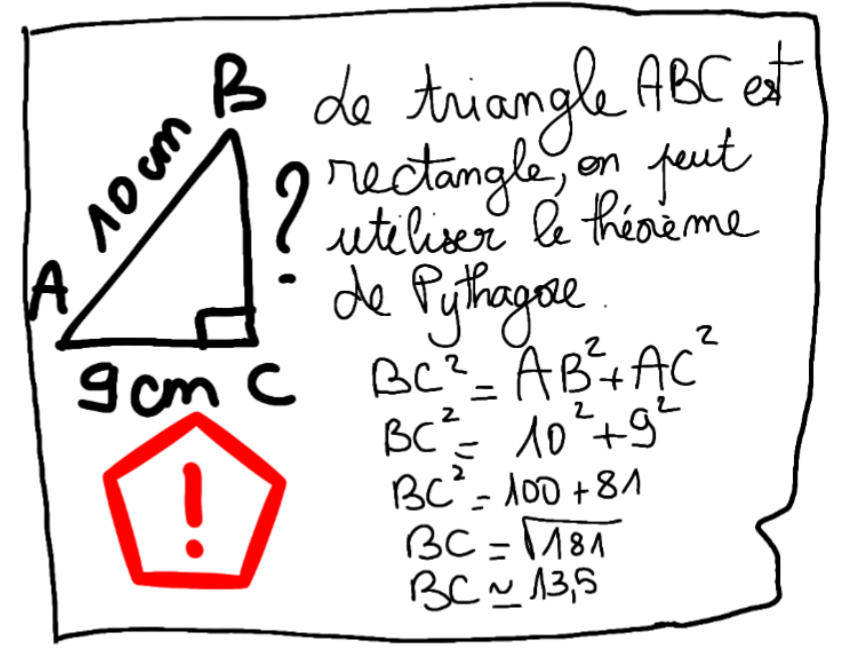 B
10 cm
?
A
9 cm C
!
Le triangle ABC est
rectangle, on peut
utiliser le théorème
de Pythagore.
BC² = AB² + AC²
BC² = 10² + 9²
BC² = 100 + 81
BC = √181
BC ≃ 13,5